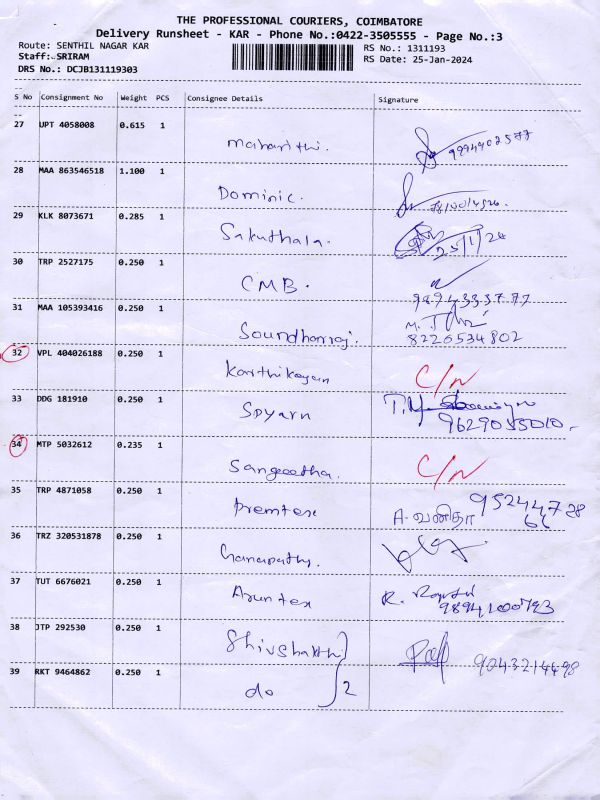 THE PROFESSIONAL COURIERS, COIMBATORE
Delivery Runsheet - KAR - Phone No.:0422-3505555 - Page No.:3
Route: SENTHIL NAGAR KAR
RS No.: 1311193
Staff: SRIRAM
RS Date: 25-Jan-2024
DRS No.: DCJB131119303
S No Consignment No Weight PCS Consignee Details Signature
27 UPT 4058008 0.615 1 9994902577
28 MAA 863546518 1.100 1 Dominic.
29 KLK 8073671 0.285 1 Sakuthala. 25/1/24
30 TRP 2527175 0.250 1 CMB.
9894333777
31 MAA 105393416 0.250 1 Soundharraj.
8226534802
32 VPL 404026188 0.250 1 Karthikayan C/N
33 DDG 181910 0.250 1 Spyarn
9629055010
34 MTP 5032612 0.235 1 Sangeetha. C/N
35 TRP 4871058 0.250 1 Premtex A. வனிதா 95244728
66
36 TRZ 320531878 0.250 1 Ganapathy.
37 TUT 6676021 0.250 1 Aruntex R.
9894100793
38 JTP 292530 0.250 1 Shivshakthi 9043214498
39 RKT 9464862 0.250 1 do 2